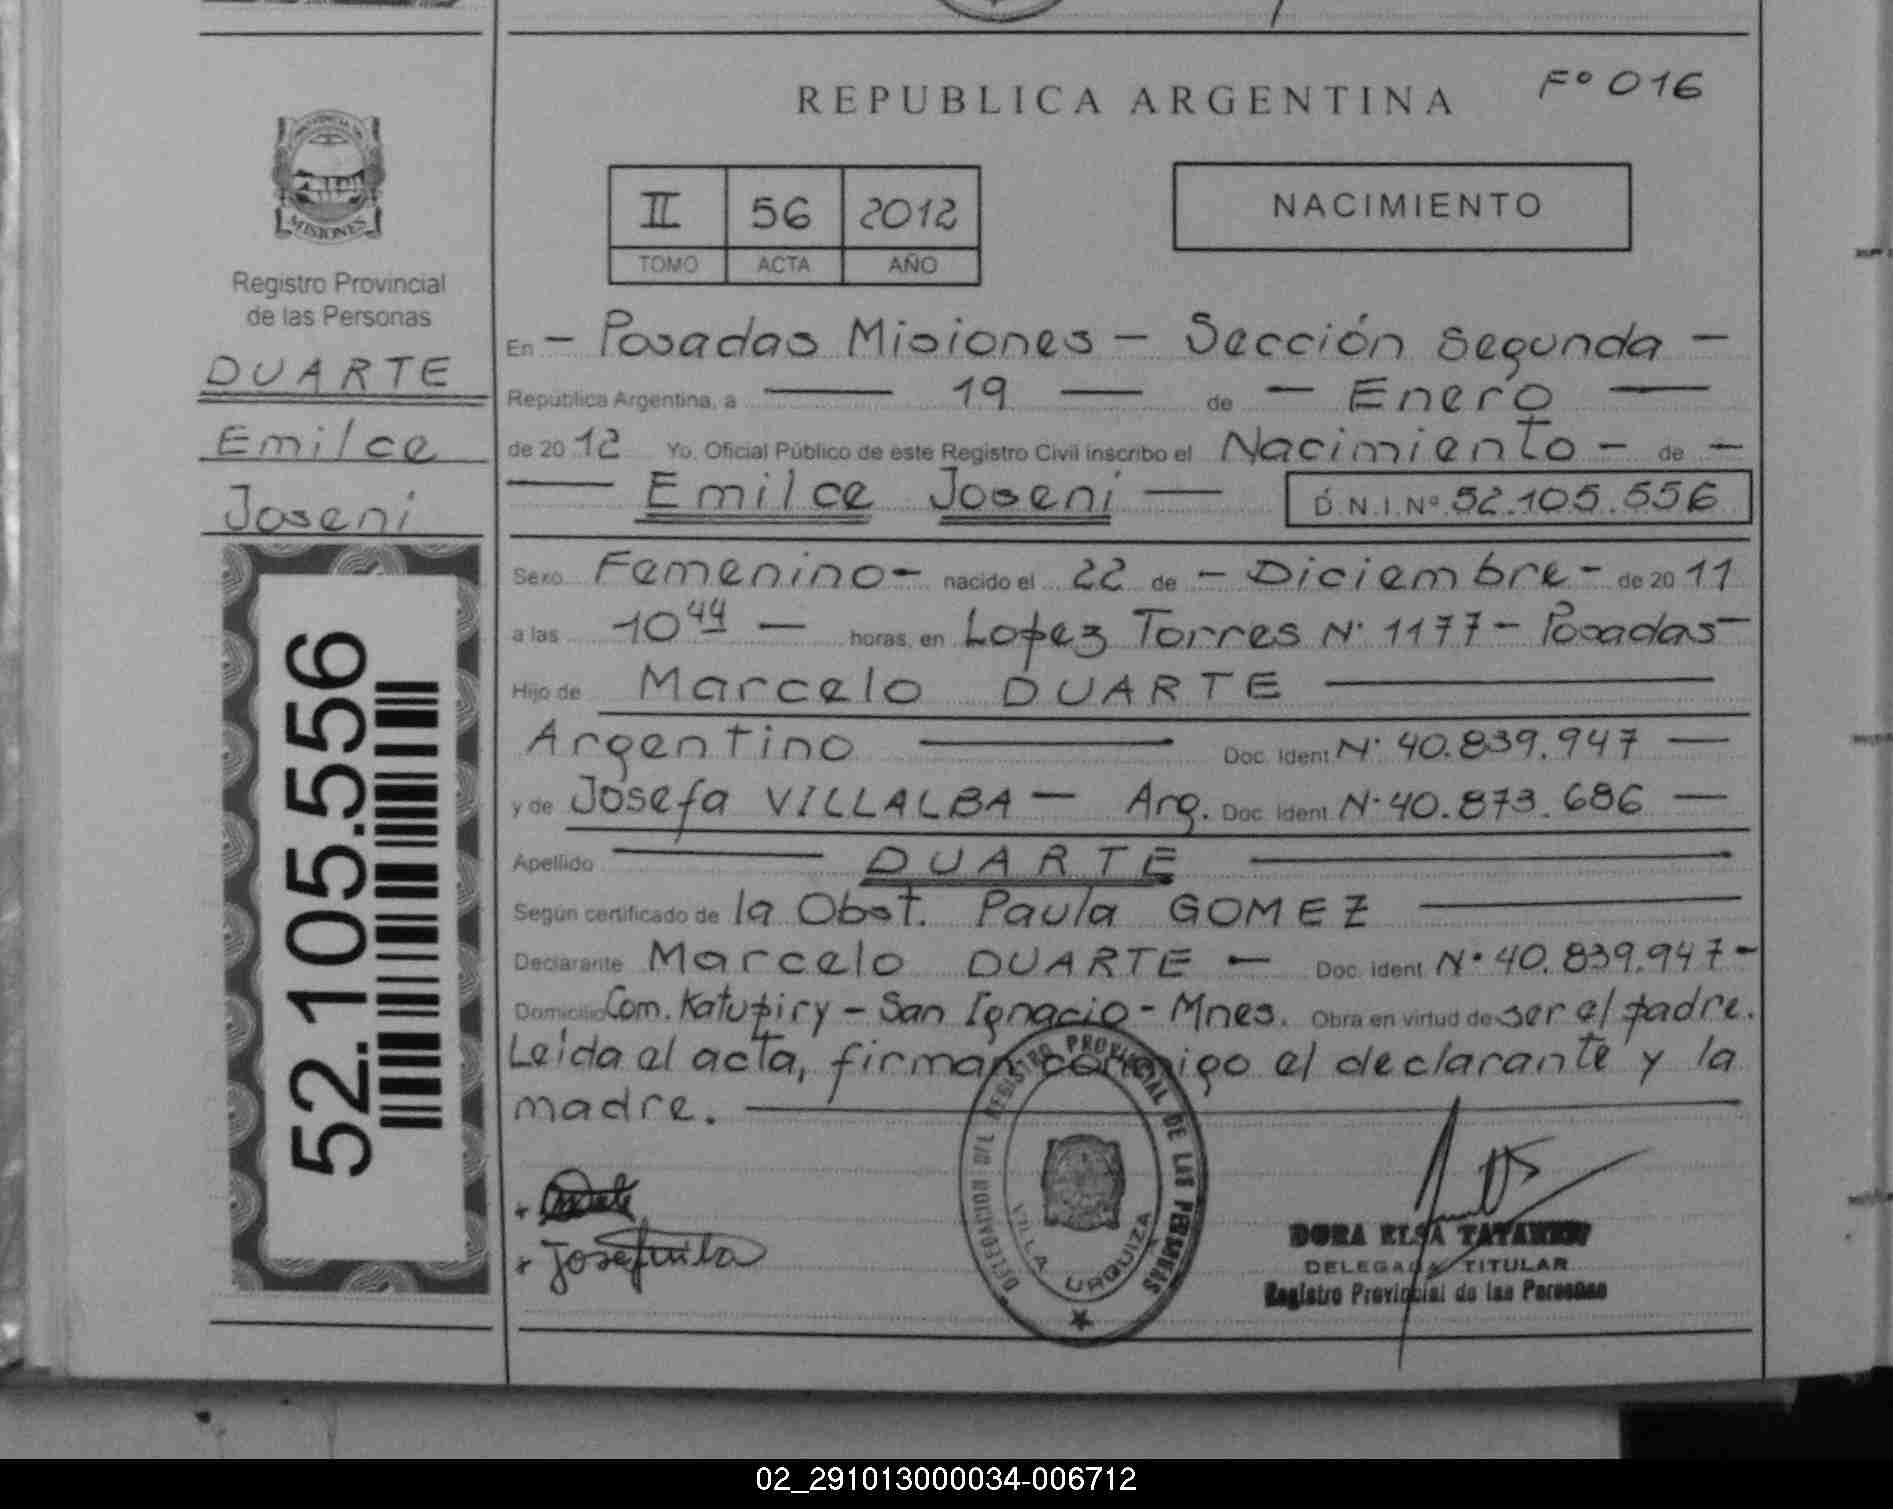 REPUBLICA ARGENTINA
Fº 016
PROVINCIA DE
MISIONES
Registro Provincial
de las Personas
DUARTE
Emilce
Joseni
52.105.556
II 56 2012
TOMO ACTA AÑO
NACIMIENTO
En - Posadas Misiones - Sección Segunda -
República Argentina, a 19 de - Enero
de 20 12 Yo, Oficial Público de este Registro Civil inscribo el Nacimiento - de -
Emilce Joseni D.N.I.Nº 52.105.556
Sexo Femenino - nacido el 22 de - Diciembre - de 20 11
a las 10 44 - horas, en Lopez Torres Nº 1177 - Posadas -
Hijo de Marcelo DUARTE
Argentino Doc. Ident. Nº 40.839.947 -
y de Josefa VILLALBA - Arg. Doc. Ident. Nº 40.873.686 -
Apellido DUARTE
Según certificado de la Obst. Paula GOMEZ
Declarante Marcelo DUARTE - Doc. Ident. Nº 40.839.947 -
Domicilio Com. Katupiry - San Ignacio - Mnes. Obra en virtud de ser el padre.
Leída el acta, firman conmigo el declarante y la
madre.
REGISTRO PROVINCIAL DE LAS PERSONAS
DELEGACION
VILLA URQUIZA
DORA ELSA
DELEGADA TITULAR
Registro Provincial de las Personas
02_291013000034-006712